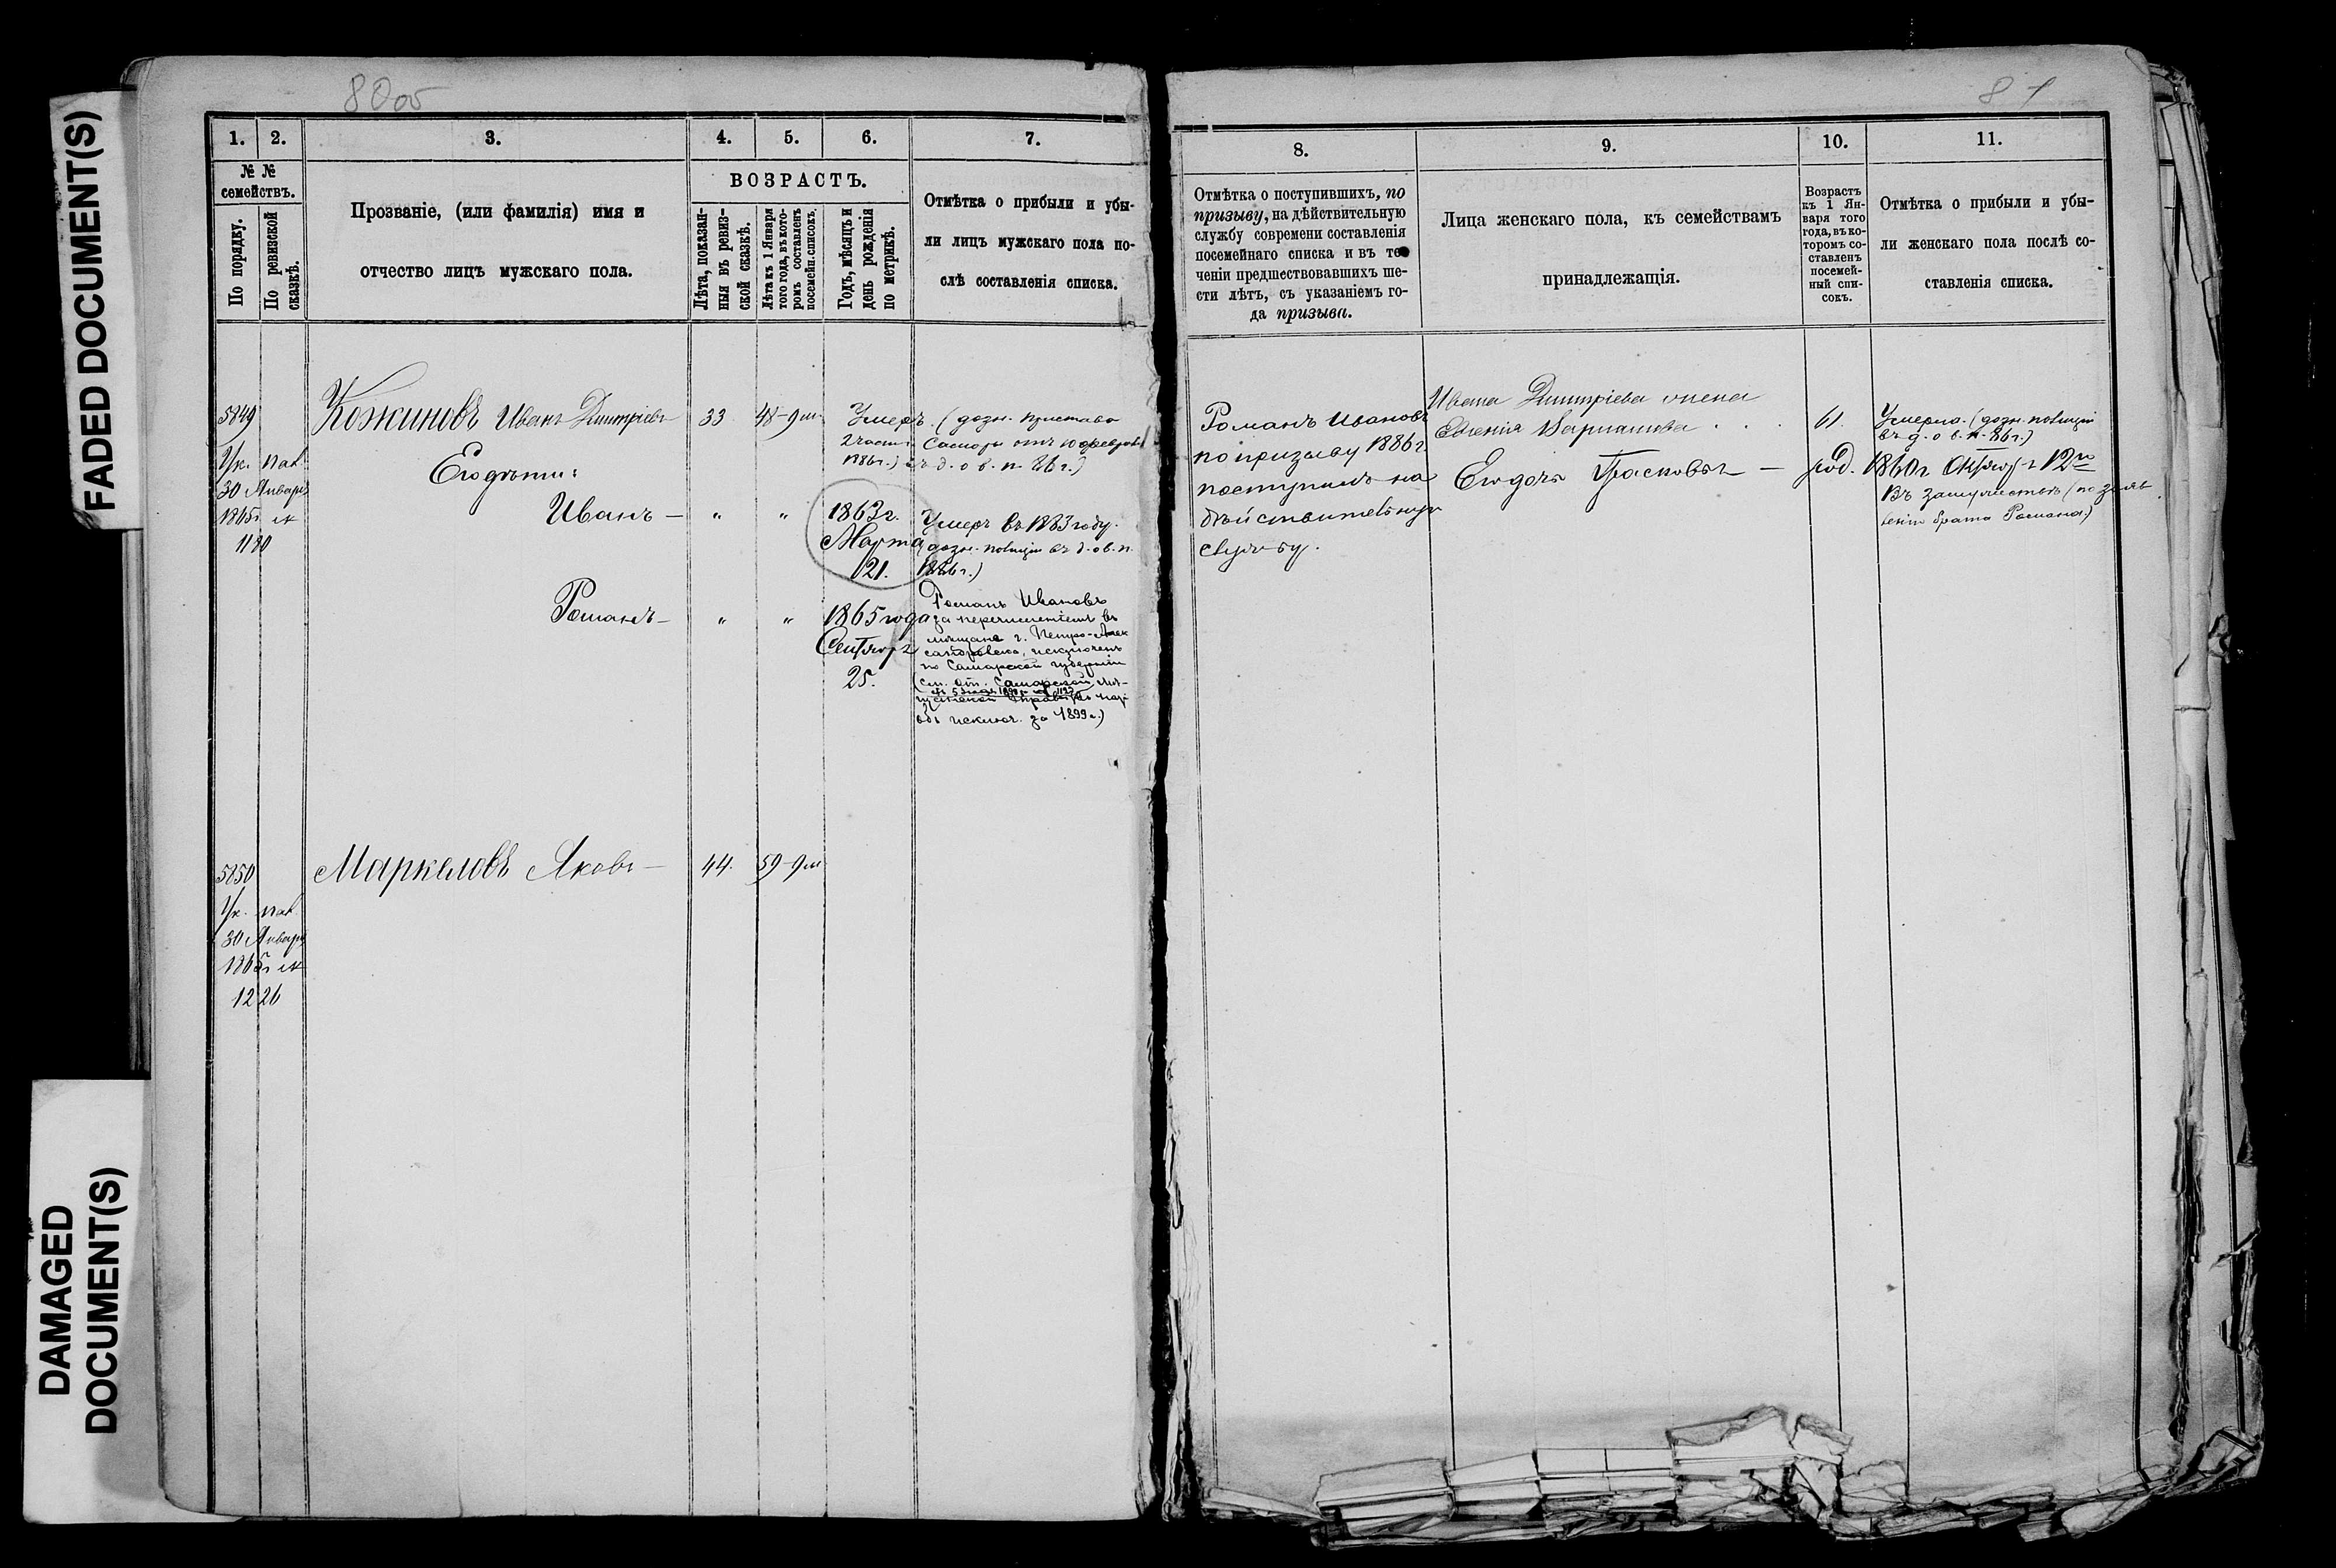 FADED DOCUMENT(S)
DAMAGED
DOCUMENT(S)
80 об
1. 2. 3. 4. 5. 6. 7.
№ №
семействъ.
По порядку.
По ревизской
сказкѣ.
Прозваніе, (или фамилія) имя и
отчество лицъ мужскаго пола.
ВОЗРАСТЪ.
Лѣта, показан-
ныя въ ревиз-
ской сказкѣ.
Лѣта къ 1 Января
того года, въ кото-
ромъ составленъ
посемейн. списокъ.
Годъ, мѣсяцъ и
день рожденія
по метрикѣ.
Отмѣтка о прибыли и убы-
ли лицъ мужскаго пола по-
слѣ составленія списка.
5849
Ук. пал.
30 Января
1865г №
1180
Кожиновъ Иванъ Дмитріевъ
33 48-9м
Умеръ. (дозн. пристава
2 части Самары отъ 10 февраля
1886г.) въ д. о в. п. 86 г.)
Его дѣти:
Иванъ — " "
1863г.
Марта
21.
Умеръ въ 1883 году.
(дозн. полиціи въ д. о в. п.
1886г.)
Романъ — " "
1865 года
Сентября
25.
Романъ Ивановъ
за перечисленіемъ въ
мѣщане г. Петро-Алек
сандровска, исключенъ
по Самарской губерніи
(см. отн. Самарской
исключ. за 1899г.)
5850
Ук. пал.
30 Января
1865г №
1226
Маркеловъ Яковъ —
44. 59-9м
81
8. 9. 10. 11.
Отмѣтка о поступившихъ, по
призыву, на дѣйствительную
службу современи составленія
посемейнаго списка и въ те
ченіи предшествовавшихъ ше-
сти лѣтъ, съ указаніемъ го-
да призыва.
Лица женскаго пола, къ семействамъ
принадлежащія.
Возрастъ
къ 1 Ян-
варя того
года, въ ко-
торомъ со-
ставленъ
посемей-
ный спи-
сокъ.
Отмѣтка о прибыли и убы-
ли женскаго пола послѣ со-
ставленія списка.
Романъ Ивановъ
по призыву 1886г.
поступилъ на
дѣйствительную
службу.
Ивана Дмитріева жена
Евгенія Варламова . . .
61.
Умерла. (дозн. полиціи
въ д. о в. п. 86г.)
Его дочь Прасковья —
род. 1860г Октября 12го
Въ замужествѣ (по заяв
ленію брата Романа)